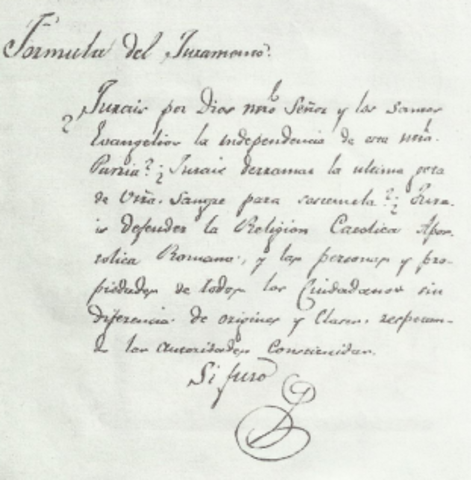 Formula del Juramento.
¿Jurais por Dios ntro Señor y los Santos
Evangelios la independencia de esta ntra
Patria? ¿Jurais derramar la ultima gota
de vrã. Sangre para sostenerla? ¿Jura-
is defender la Religion Catolica Apos-
tolica Romana, y las personas y pro-
piedades de todos los Ciudadanos sin
diferencia de origenes y Clases, respetan-
do las autoridades Constituidas.
Si juro